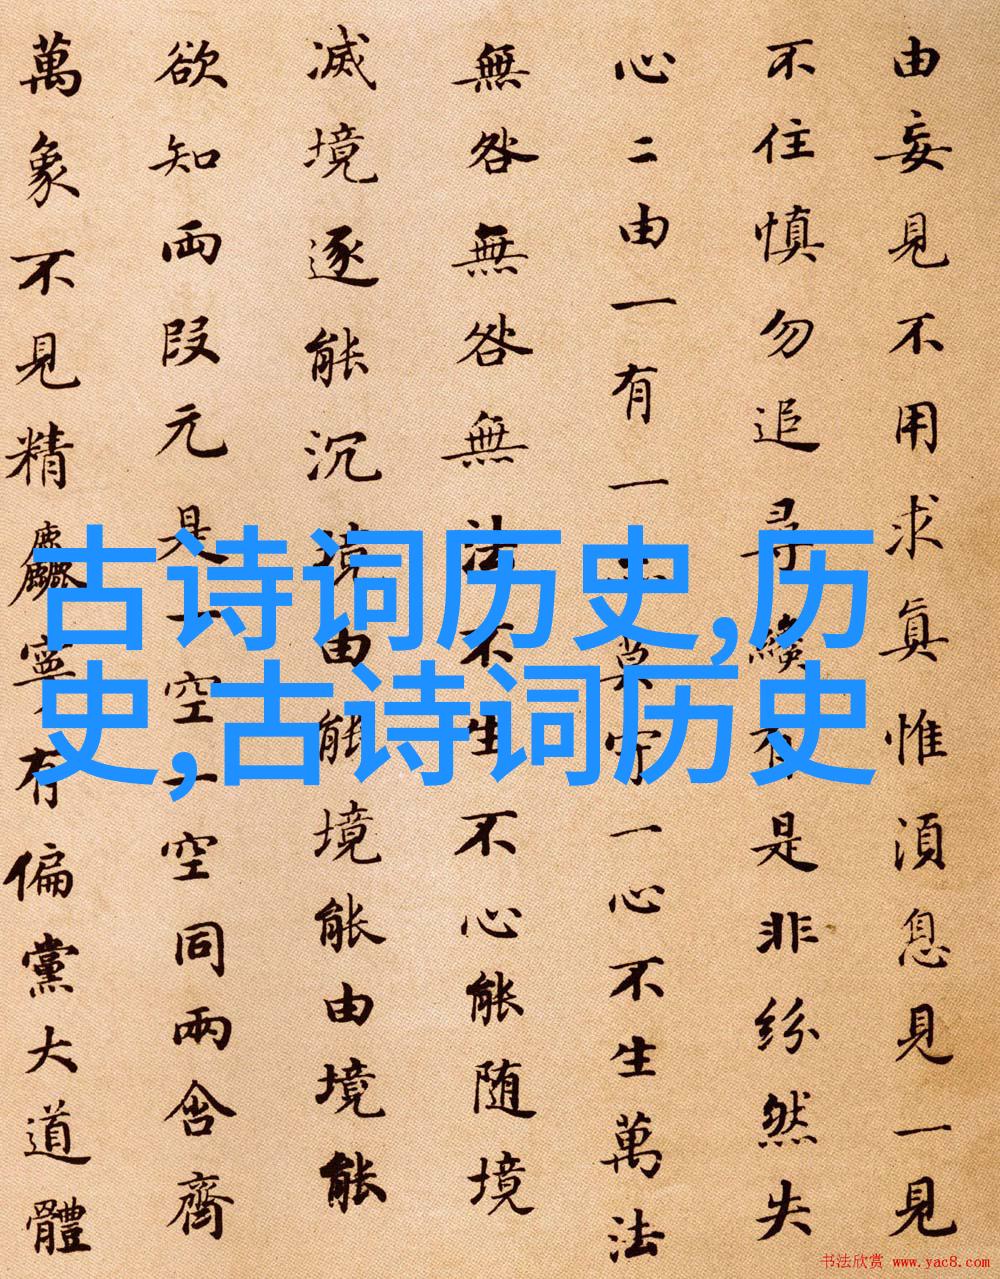 由妄見不用求真惟須息見一見
不住慎勿追尋纔有是非紛然失
心二由一有一亦莫守一心不生萬法
無咎無咎無法不生不心能随境
滅境逐能沉境由能境能由境能
欲知両段元是一空一空同兩含齊
萬象不見精麤寧有偏黨大道體
古诗词历史,历
史,古诗词历史
书法欣赏 www.yac8.com